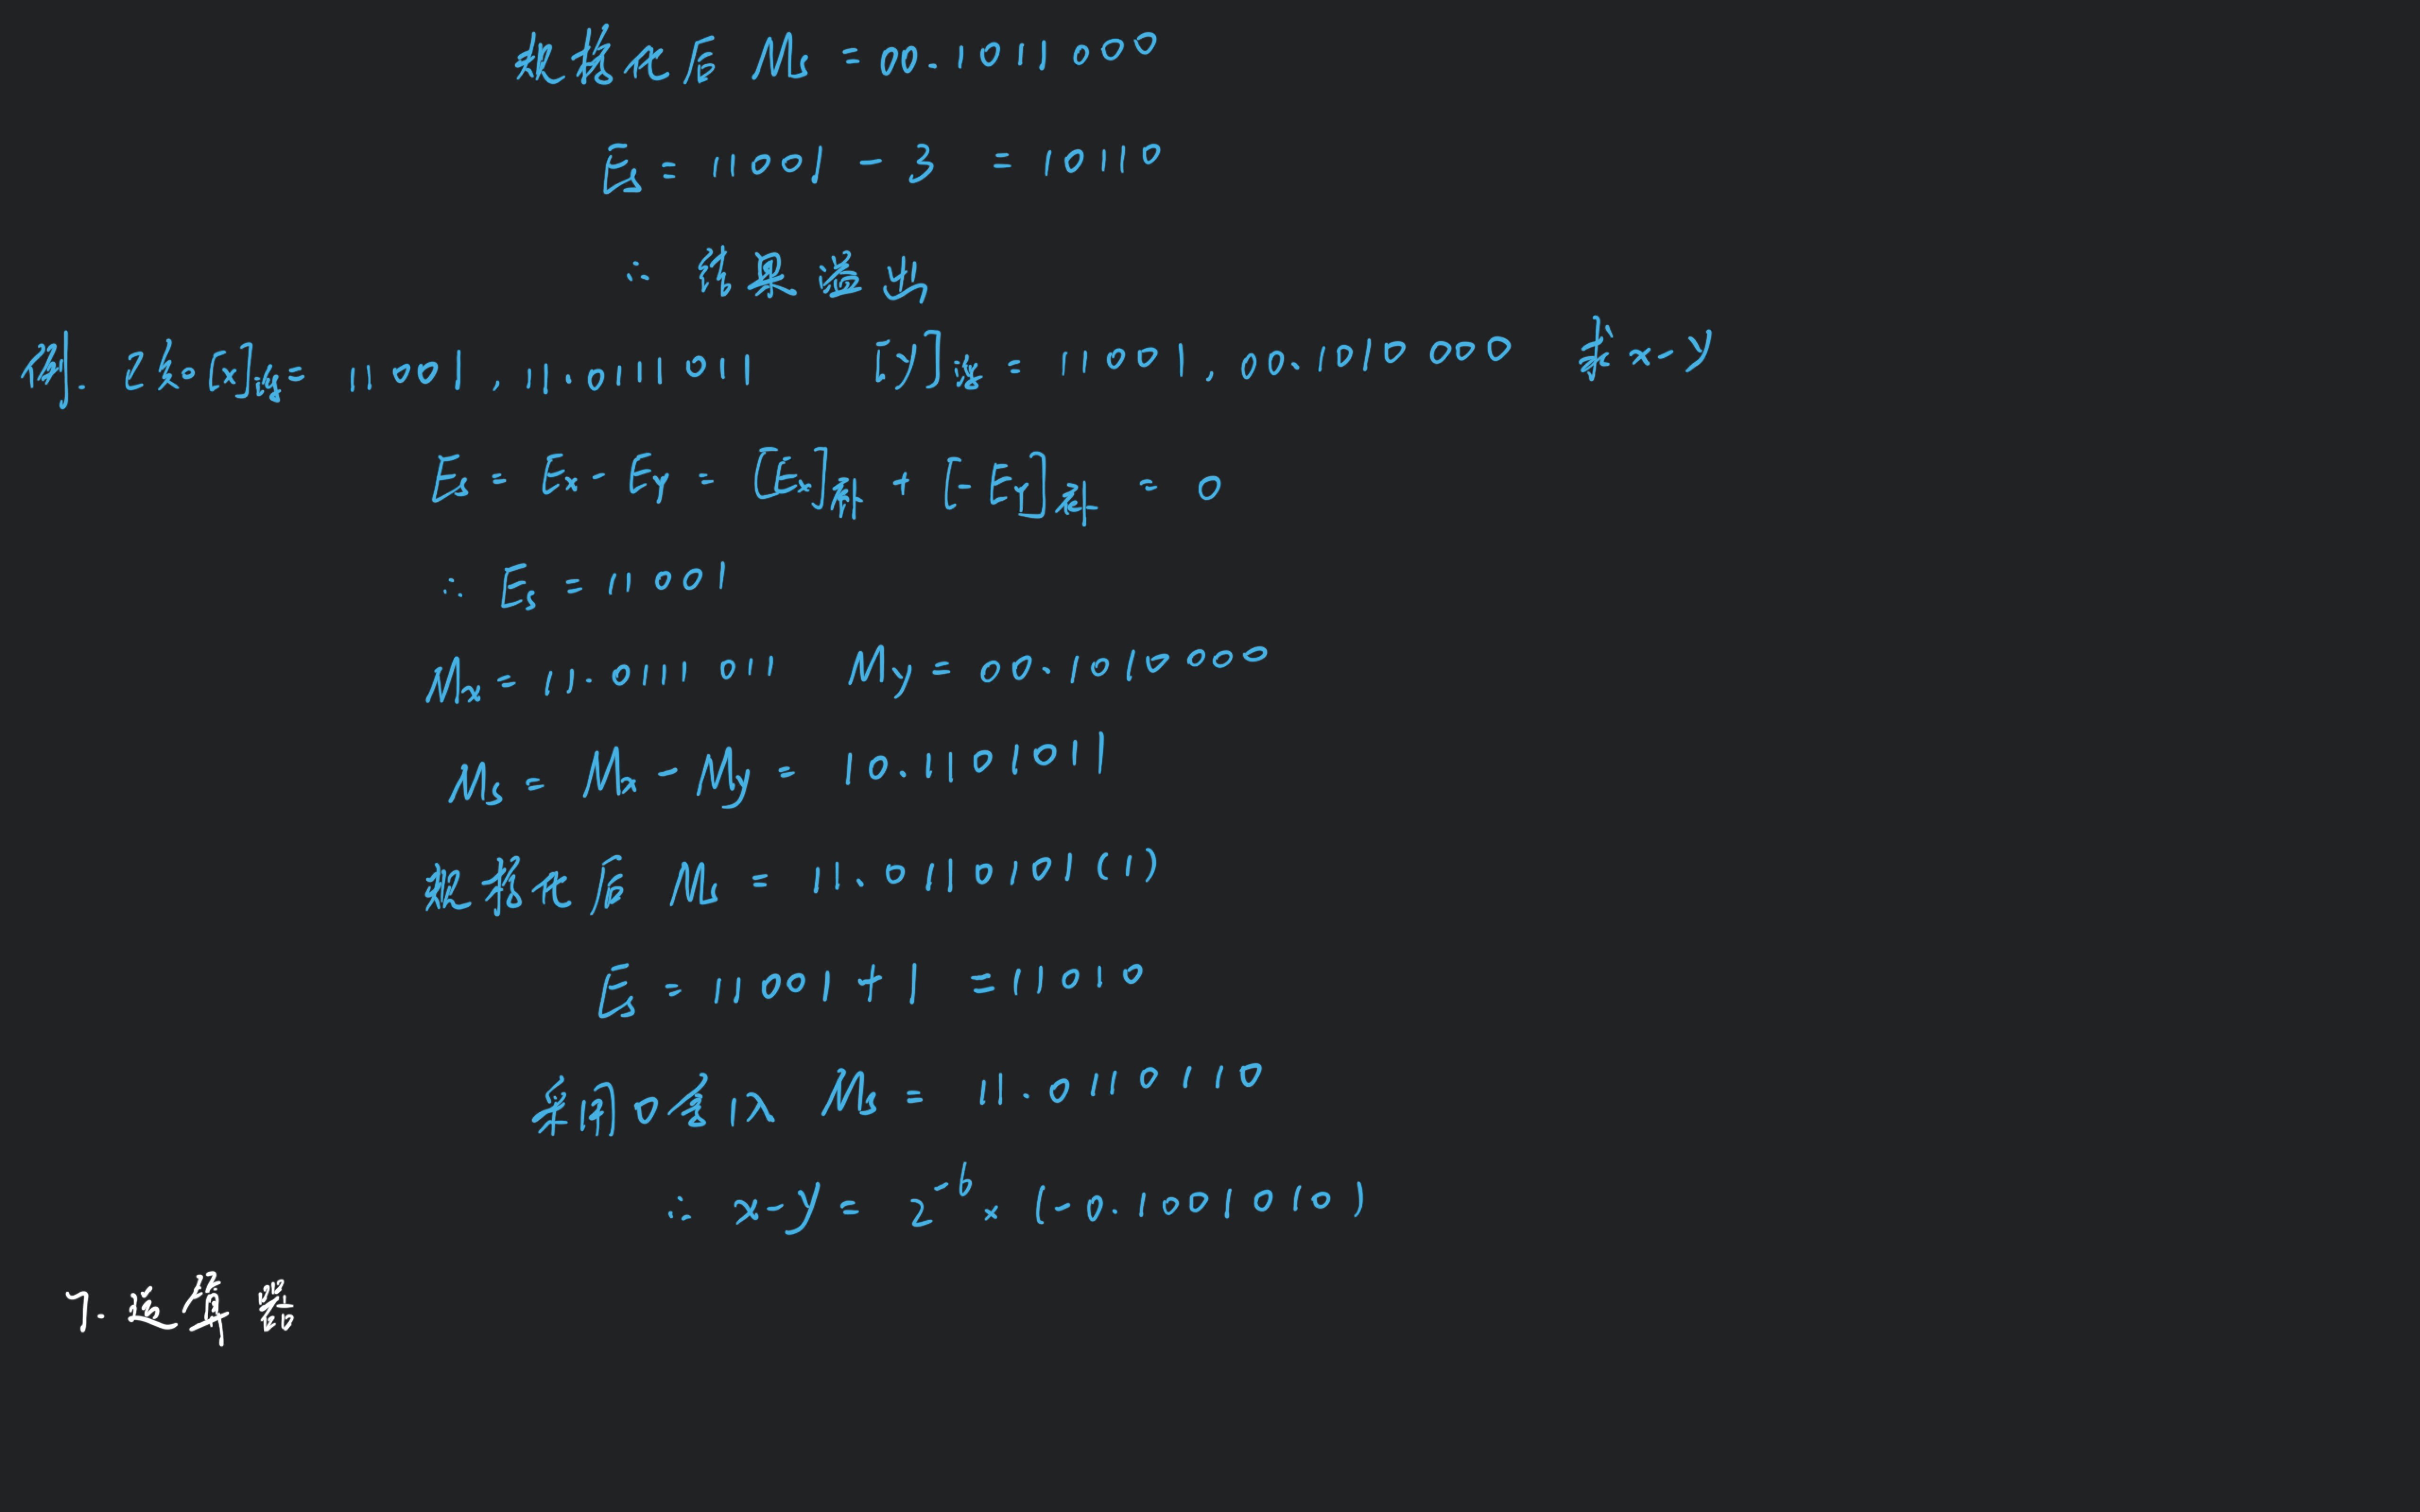 规格化后 Ms = 00.1011000
Es = 11001 - 3 = 10110
∴ 结果溢出
例. 已知[x]浮 = 11001, 11.0111011 [y]浮 = 11001, 00.1010000 求 x-y
Es = Ex - Ey = [Ex]补 + [-Ey]补 = 0
∴ Es = 11001
Mx = 11.0111011 My = 00.1010000
Ms = Mx - My = 10.1101011
规格化后 Ms = 11.0110101(1)
Es = 11001 + 1 = 11010
采用0舍1入 Ms = 11.0110110
∴ x-y = 2^-6 × (-0.1001010)
7. 运算器